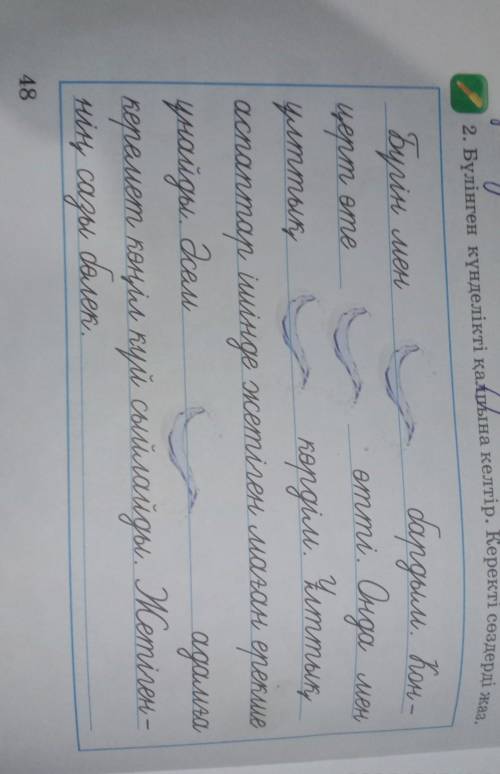 2. Бүлінген күнделікті қалпына келтір. Керекті сөздерді жаз.
Бүгін мен бардым. Кон-
церт өте өтті. Онда мен
ұлттық көрдім. Ұлттық
аспаптар ішінде жетіген маған ерекше
ұнайды. Әсем адамға
керемет көңіл күй сыйлайды. Жетіген-
нің сазы бөлек.
48